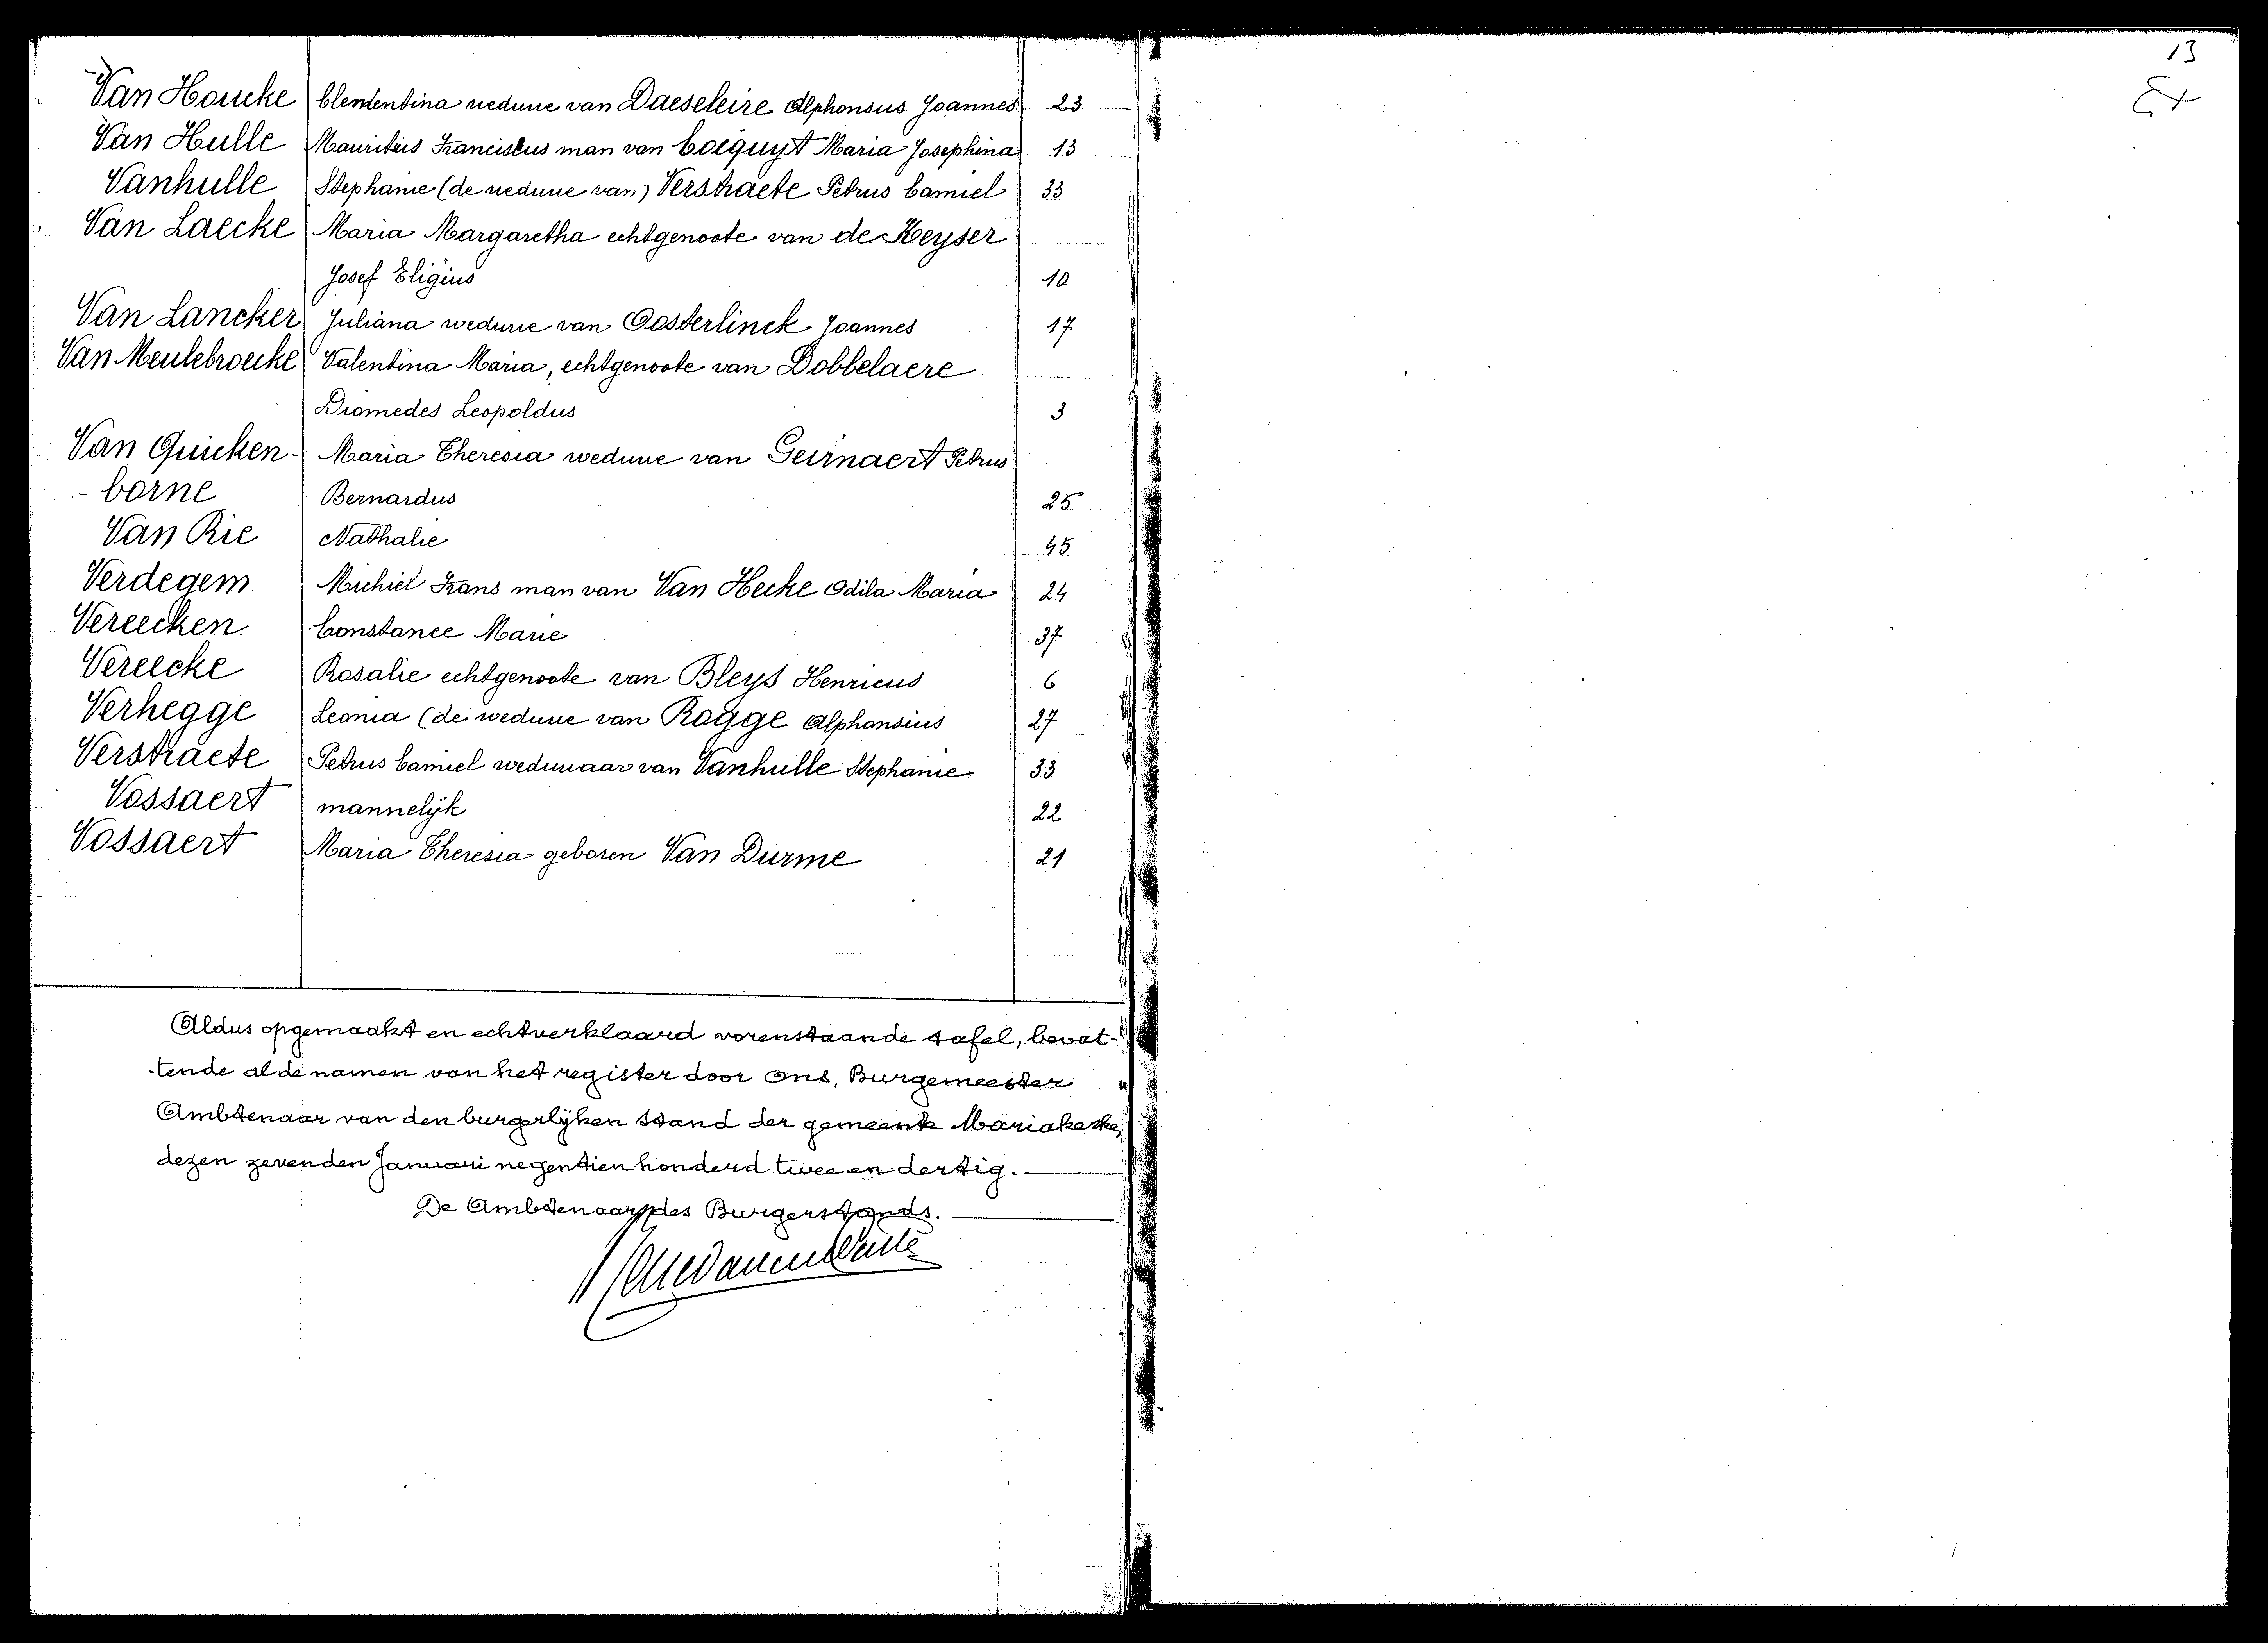 Van Houcke Clementina weduwe van Daeseleire Alphonsus Joannes 23
Van Hulle Mauritius Franciscus man van Cocquyt Maria Josephina 13
Vanhulle Stephanie (de weduwe van) Verstraete Petrus Camiel 33
Van Laecke Maria Margaretha echtgenoote van de Keyser
Josef Eligius 10
Van Lancker Juliana weduwe van Oosterlinck Joannes 17
Van Meulebroecke Valentina Maria, echtgenoote van Dobbelaere
Diomedes Leopoldus 3
Van Quicken- Maria Theresia weduwe van Geirnaert Petrus
-borne Bernardus 25
Van Rie Nathalie 45
Verdegem Michiel Frans man van Van Hecke Odila Maria 24
Vereecken Constance Marie 37
Vereecke Rosalie echtgenoote van Bleys Henricus 6
Verhegge Leonia (de weduwe van Rogge Alphonsius 27
Verstraete Petrus Camiel weduwaar van Vanhulle Stephanie 33
Vossaert mannelijk 22
Vossaert Maria Theresia geboren Van Durme 21
Aldus opgemaakt en echtverklaard vorenstaande tafel, bevat-
-tende al de namen van het register door Ons, Burgemeester
Ambtenaar van den burgerlijken stand der gemeente Mariakerke,
dezen zevenden Januari negentien honderd twee en dertig.
De Ambtenaar des Burgerstands.
13